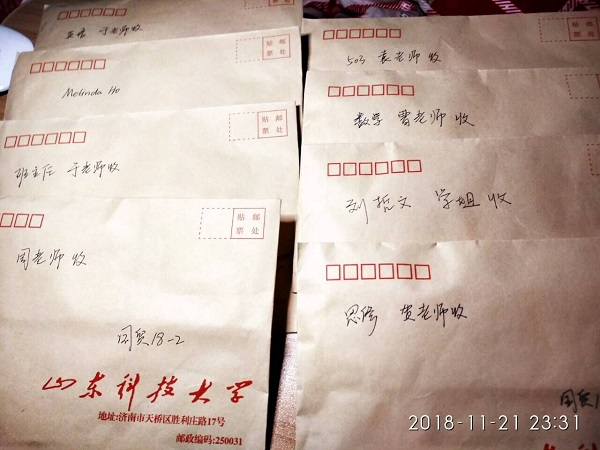 于老师收
贴 邮
票 处
Melinda Ho
贴 邮
票 处
班主任 于老师收
贴 邮
票 处
周老师 收
贴 邮
票 处
国贸18-2
山东科技大学
地址:济南市天桥区胜利庄路17号
邮政编码:250031
503 袁老师 收
贴 邮
票 处
数学 曹老师 收
贴 邮
票 处
刘哲文 学姐 收
思修 贺老师收
国贸1
2018-11-21 23:31